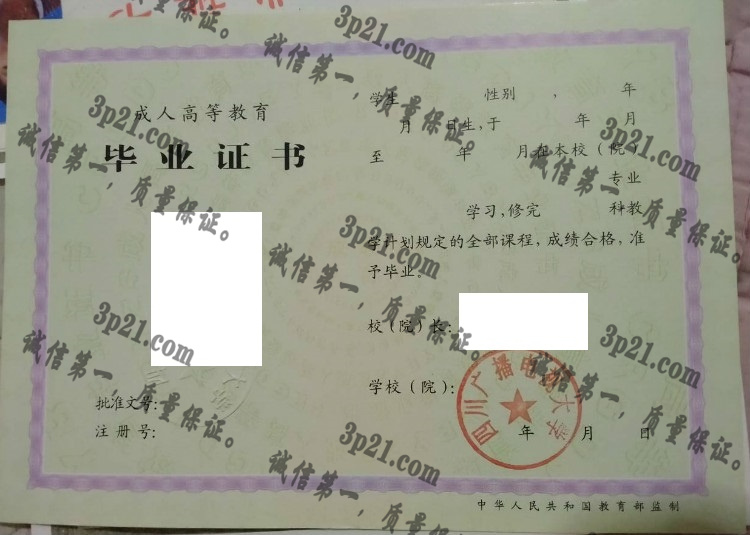 成人高等教育
毕业证书
批准文号:
注册号:
学生 性别 , 年
月 日生,于 年 月
至 年 月在本校(院)
专业
学习,修完 科教
学计划规定的全部课程,成绩合格,准
予毕业。
校(院)长:
学校(院):
四川广播电视大学
年 月 日
中华人民共和国教育部监制
3p21.com
诚信第一,质量保证。
3p21.com
诚信第一,质量保证。
3p21.com
诚信第一,质量保证。
3p21.com
诚信第一,质量保证。
3p21.com
诚信第一,质量保证。
3p21.com
诚信第一,质量保证。
3p21.com
诚信第一,质量保证。
3p21.com
诚信第一,质量保证。